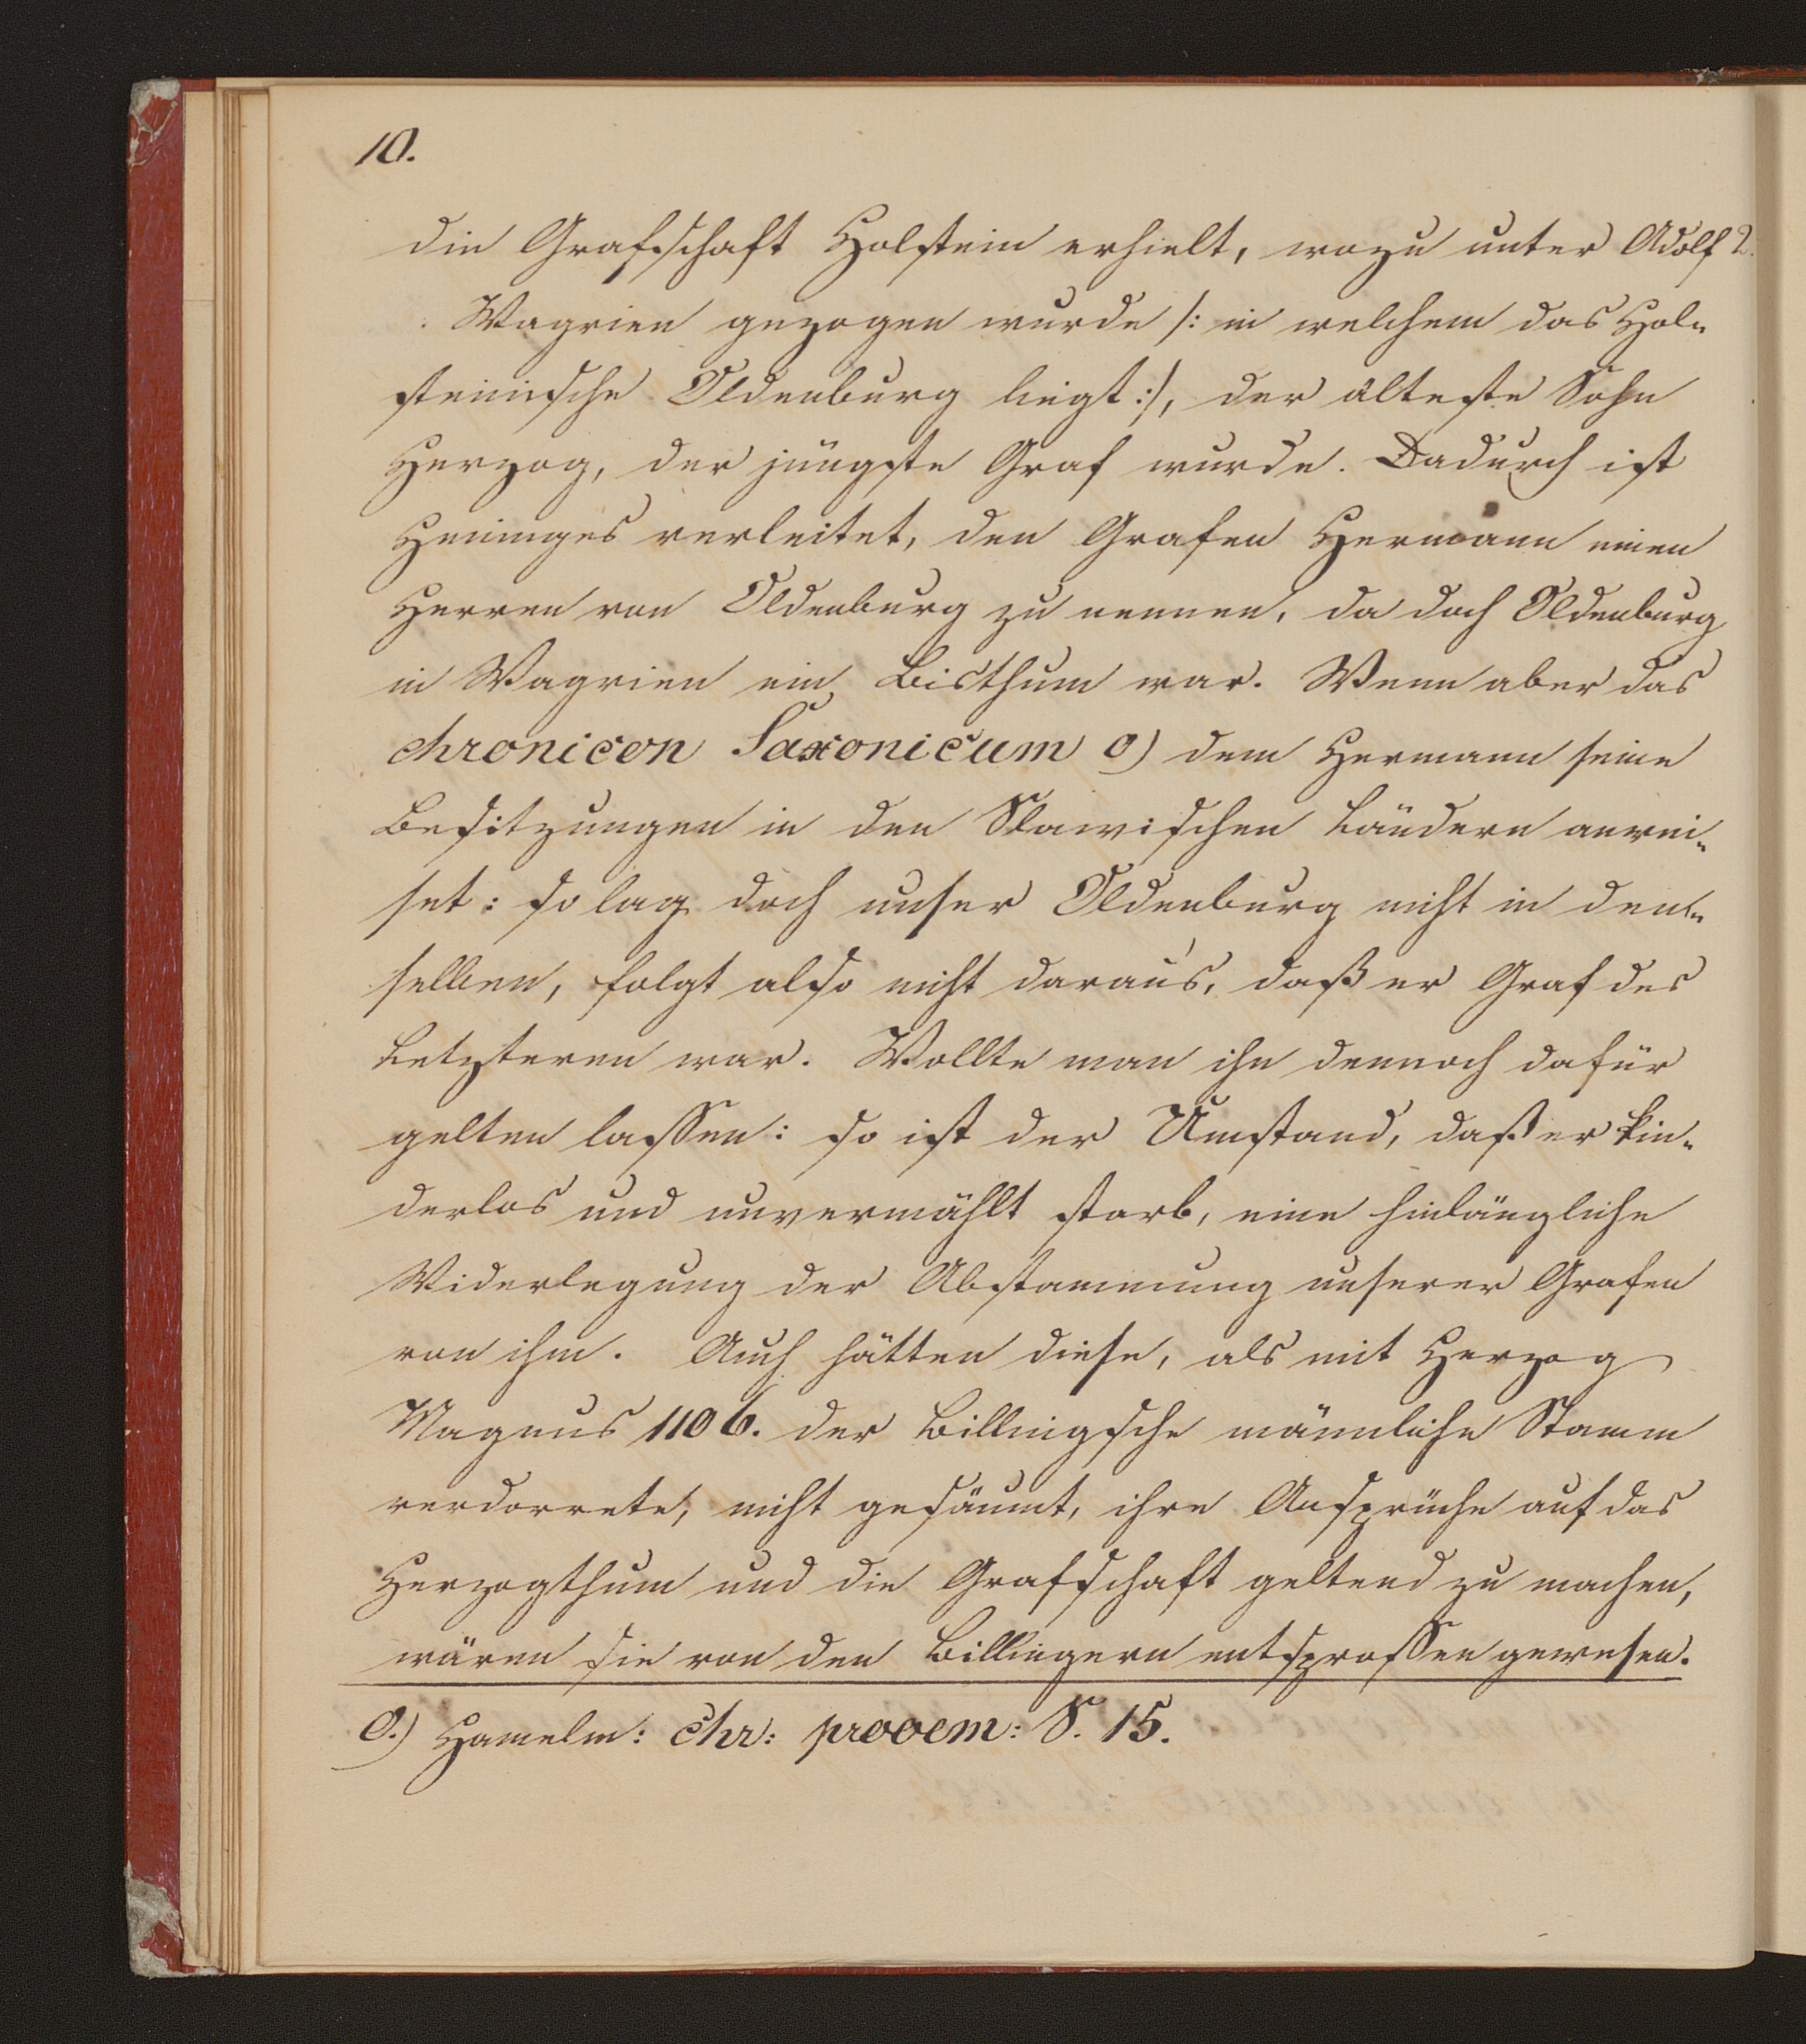 10.
die Grafschaft Holstein erhielt, wozu unter Adolf 2.
Wagrien gezogen wurde /: in welchem das Hol„
steinische Oldenburg liegt :/, der älteste Sohn
Herzog, der jüngste Graf wurde. Dadurch ist
Henninges verleitet, den Grafen Hermann einen
Herren von Oldenburg zu nennen, da doch Oldenburg
in Wagrien ein Bisthum war. Wenn aber das
chronicon Saxonicum o) dem Hermann seine
Besitzungen in den Slawischen Ländern anwei„
set: so lag doch unser Oldenburg nicht in den„
selben, folgt also nicht daraus, daß er Graf des
Letzteren war. Wollte man ihn dennoch dafür
gelten lassen: so ist der Umstand, daß er kin„
derlos und unvermählt starb, eine hinlängliche
Widerlegung der Abstammung unserer Grafen
von ihm. Auch hätten diese, als mit Herzog
Magnus 1106. der Billingsche männliche Stamm
verdorrete, nicht gesäumt, ihre Ansprüche auf das
Herzogthum und die Grafschaft geltend zu machen,
wären sie von den Billingern entsprossen gewesen.
O.) Hamelm: chr: prooem: S. 15.